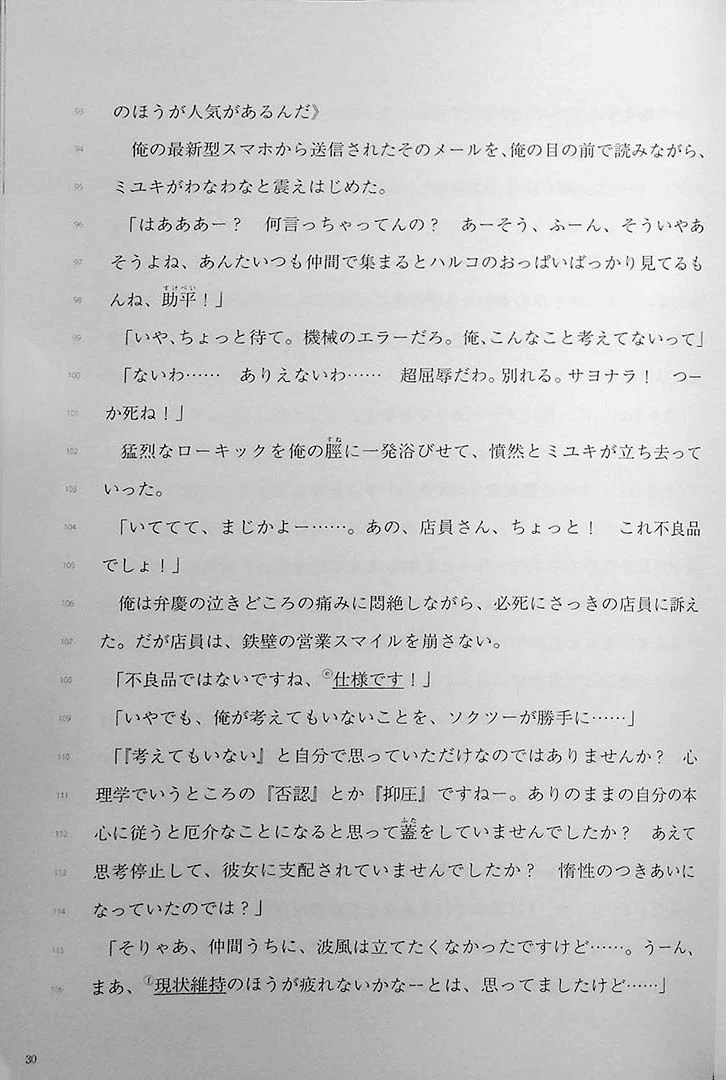 93 のほうが人気があるんだ》
94 俺の最新型スマホから送信されたそのメールを、俺の目の前で読みながら、
95 ミユキがわなわなと震えはじめた。
96 「はあああー？　何言っちゃってんの？　あーそう、ふーん、そういやあ
97 そうよね、あんたいつも仲間で集まるとハルコのおっぱいばっかり見てるも
すけべい
98 んね、助平！」
99 「いや、ちょっと待て。機械のエラーだろ。俺、こんなこと考えてないって」
100 「ないわ……　ありえないわ……　超屈辱だわ。別れる。サヨナラ！　つー
101 か死ね！」
すね
102 猛烈なローキックを俺の脛に一発浴びせて、憤然とミユキが立ち去って
103 いった。
104 「いててて、まじかよー……。あの、店員さん、ちょっと！　これ不良品
105 でしょ！」
106 俺は弁慶の泣きどころの痛みに悶絶しながら、必死にさっきの店員に訴え
107 た。だが店員は、鉄壁の営業スマイルを崩さない。
108 「不良品ではないですね、ⓔ仕様です！」
109 「いやでも、俺が考えてもいないことを、ソクツーが勝手に……」
110 「『考えてもいない』と自分で思っていただけなのではありませんか？　心
111 理学でいうところの『否認』とか『抑圧』ですねー。ありのままの自分の本
ふた
112 心に従うと厄介なことになると思って蓋をしていませんでしたか？　あえて
113 思考停止して、彼女に支配されていませんでしたか？　惰性のつきあいに
114 なっていたのでは？」
115 「そりゃあ、仲間うちに、波風は立てたくなかったですけど……。うーん、
116 まあ、ⓕ現状維持のほうが疲れないかなーとは、思ってましたけど……」
30